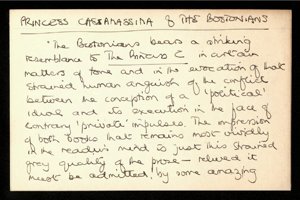 PRINCESS CASSAMASSIMA & THE BOSTONIANS
'The Bostonians bears a striking
resemblance to The Princess C in certain
matters of tone and in its evocation of that
strained human anguish of the conflict
between the conception of a 'political'
ideal and its execution in the face of
contrary 'private' impulses. The impression
of both books that remains most vividly
in the reader's mind is just this strained
grey quality of the prose — relieved it
must be admitted by some amazing